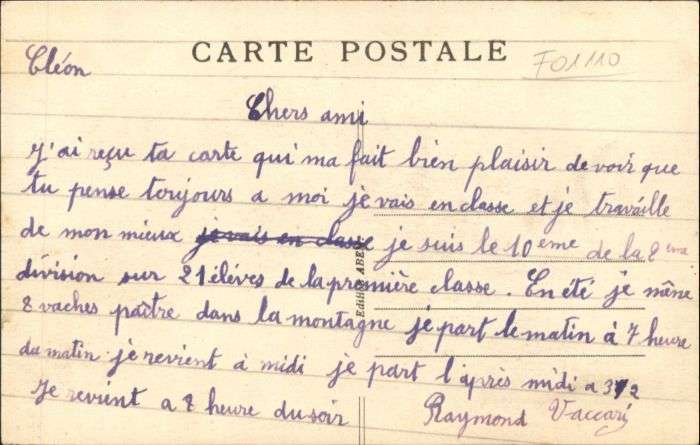 CARTE POSTALE
F01110
Cléon
Chers ami
J'ai reçu ta carte qui ma fait bien plaisir de voir que
tu pense toujours a moi je vais en classe et je travaille
de mon mieux je vais en classe je suis le 10 eme de la 2 eme
division sur 21 élèves de la première classe. En été je mène
8 vaches paître dans la montagne je part le matin à 7 heure
du matin je revient à midi je part l'après midi a 3
Je revient a 8 heure du soir
Raymond Vaccari